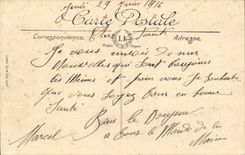 Jeudi 29 Juin 1916
Carte Postale
Correspondance
Adresse
Chers Parents
Je vous envois de mes
Nouvelles qui sont toujours
les mêmes et pour vous Je souhaite
que vous soyez tous en bonne
Santé
Bien le Bonjour
Marcel
a tous le Monde de la
Maison